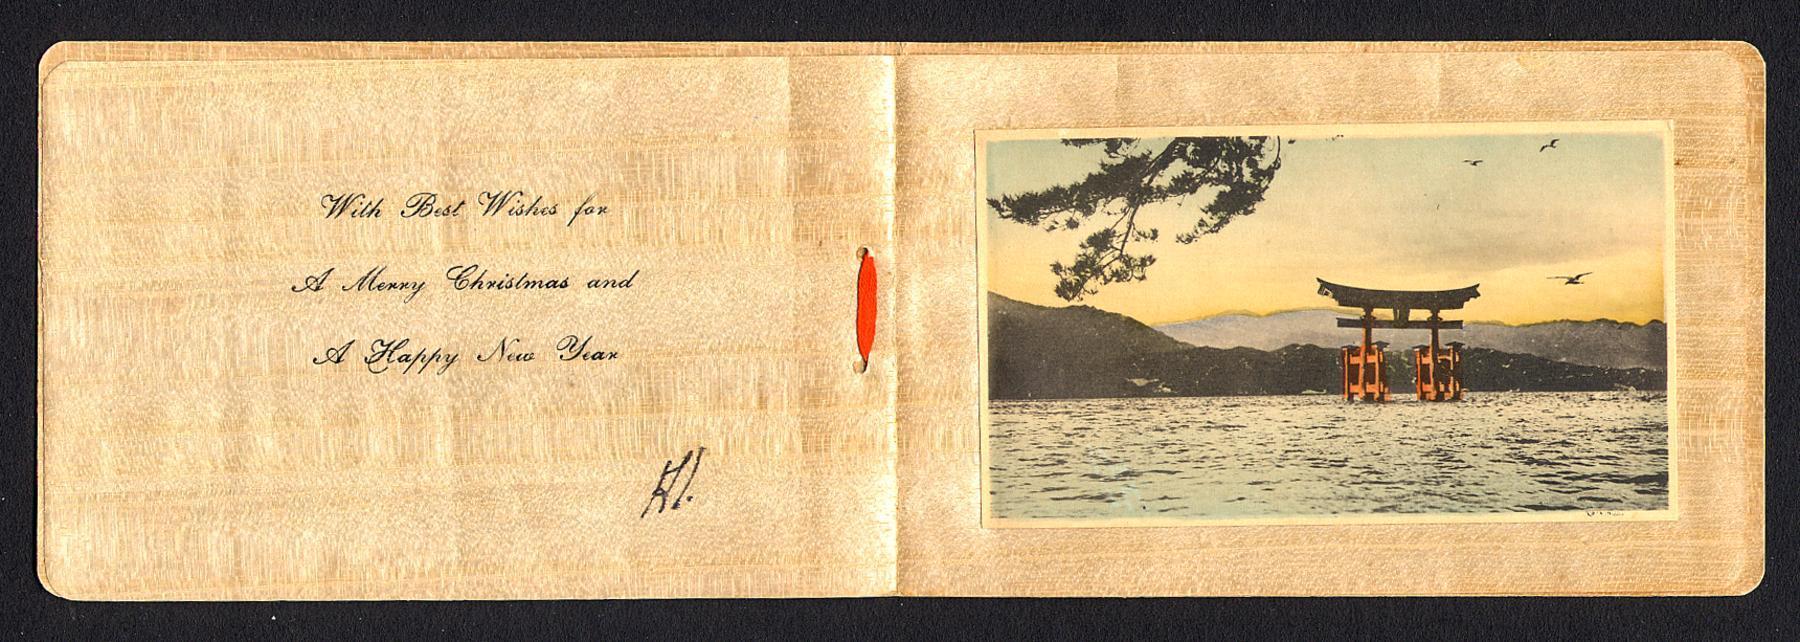 With Best Wishes for
A Merry Christmas and
A Happy New Year